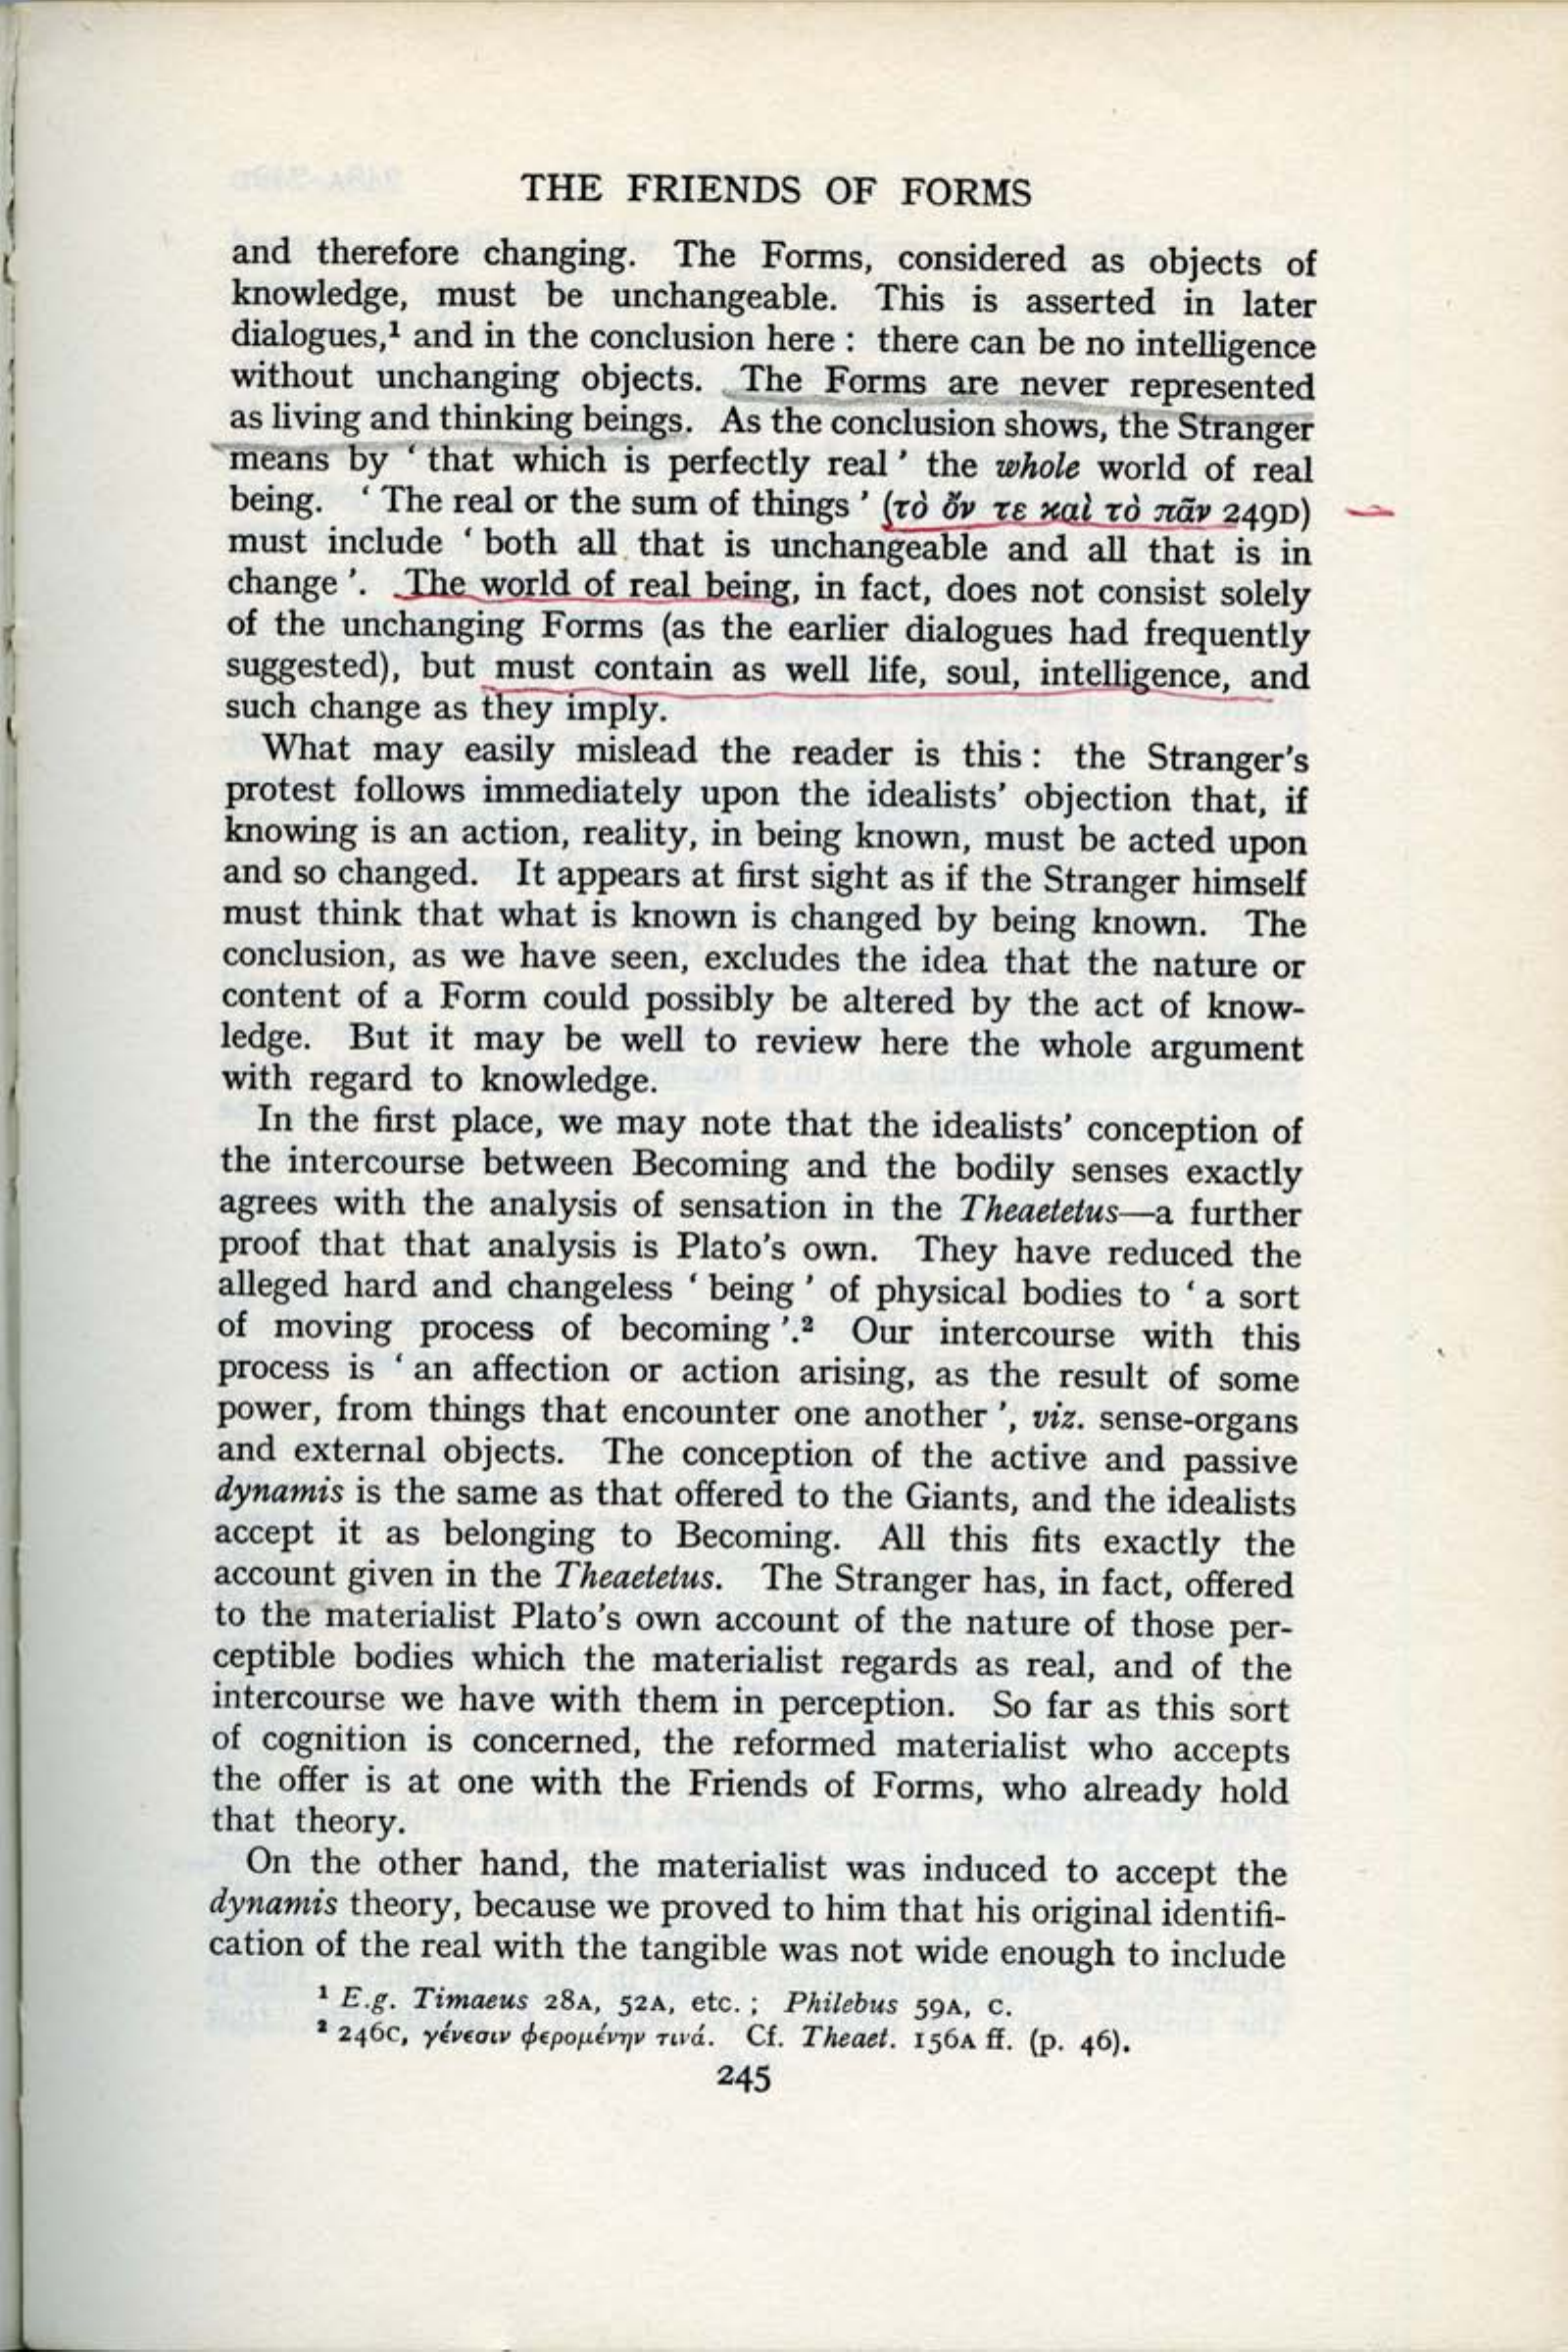 THE FRIENDS OF FORMS
and therefore changing. The Forms, considered as objects of
knowledge, must be unchangeable. This is asserted in later
dialogues,¹ and in the conclusion here : there can be no intelligence
without unchanging objects. The Forms are never represented
as living and thinking beings. As the conclusion shows, the Stranger
means by ‘ that which is perfectly real ’ the whole world of real
being. ‘ The real or the sum of things ’ (τὸ ὄν τε καὶ τὸ πᾶν 249D)
must include ‘ both all that is unchangeable and all that is in
change ’. The world of real being, in fact, does not consist solely
of the unchanging Forms (as the earlier dialogues had frequently
suggested), but must contain as well life, soul, intelligence, and
such change as they imply.
What may easily mislead the reader is this : the Stranger’s
protest follows immediately upon the idealists’ objection that, if
knowing is an action, reality, in being known, must be acted upon
and so changed. It appears at first sight as if the Stranger himself
must think that what is known is changed by being known. The
conclusion, as we have seen, excludes the idea that the nature or
content of a Form could possibly be altered by the act of know-
ledge. But it may be well to review here the whole argument
with regard to knowledge.
In the first place, we may note that the idealists’ conception of
the intercourse between Becoming and the bodily senses exactly
agrees with the analysis of sensation in the Theaetetus—a further
proof that that analysis is Plato’s own. They have reduced the
alleged hard and changeless ‘ being ’ of physical bodies to ‘ a sort
of moving process of becoming ’.² Our intercourse with this
process is ‘ an affection or action arising, as the result of some
power, from things that encounter one another ’, viz. sense-organs
and external objects. The conception of the active and passive
dynamis is the same as that offered to the Giants, and the idealists
accept it as belonging to Becoming. All this fits exactly the
account given in the Theaetetus. The Stranger has, in fact, offered
to the materialist Plato’s own account of the nature of those per-
ceptible bodies which the materialist regards as real, and of the
intercourse we have with them in perception. So far as this sort
of cognition is concerned, the reformed materialist who accepts
the offer is at one with the Friends of Forms, who already hold
that theory.
On the other hand, the materialist was induced to accept the
dynamis theory, because we proved to him that his original identifi-
cation of the real with the tangible was not wide enough to include
¹ E.g. Timaeus 28A, 52A, etc. ; Philebus 59A, C.
² 246C, γένεσιν φερομένην τινά. Cf. Theaet. 156A ff. (p. 46).
245